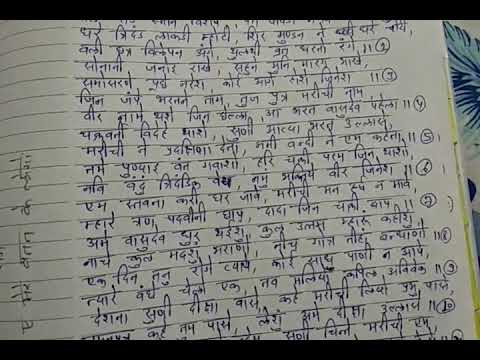 धरे त्रिदंड लाकडी म्होटी, शिर मुण्डन ने धरे चोटी,
वली छत्र विलेपन अंगे, थुलथी व्रत धरतो रंगे ॥ २
सोनानी जनोइ राखे, सहुने मुनि मारग भाखे,
समोसरणे पूछे नरेश, कोइ आगे होशे जिनेश ॥ ३
जिन जंपे भरतने ताम, तुज पुत्र मरीची नाम,
वीर नामे थशे जिन छेल्ला, आ भरत वासुदेव पहेला ॥ ४
चक्रवर्ती विदेहे थाशे, सुणी आव्या भरत उल्लासे,
मरीची ने प्रदक्षिणा देता, नमी वन्दी ने एम कहेता ॥ ५
तमे पुण्याइ वंत गवाशो, हरि चक्री चरम जिन थाशो,
नवि वंदु त्रिदंडिक वेष, नमु भक्तिये वीर जिनेश ॥ ६
एम स्तवना करी घर जावे, मरीची मन हर्ष न मावे,
म्हारे त्रण पदवीनी छाप, दादा जिन चक्री बाप ॥ ७
अमे वासुदेव धुर थइशुं, कुल उत्तम म्हारु कहीशुं,
नाचे कुल मदशुं भराणो, नीच गोत्र तीहां बन्धाणो ॥ ८
एक दिन तनु रोगे व्यापे, कोइ साधु पाणी न आपे,
त्यारे वंछे चेलो एक, तव मलियो कपिल अविवेक ॥ ९
देशना सुणी दीक्षा वासे, कहे मरीची लियो प्रभु पासे,
राजपुत्र कहे तुम पासे, लेशुं अमे दीक्षा उल्लासे ॥ १०